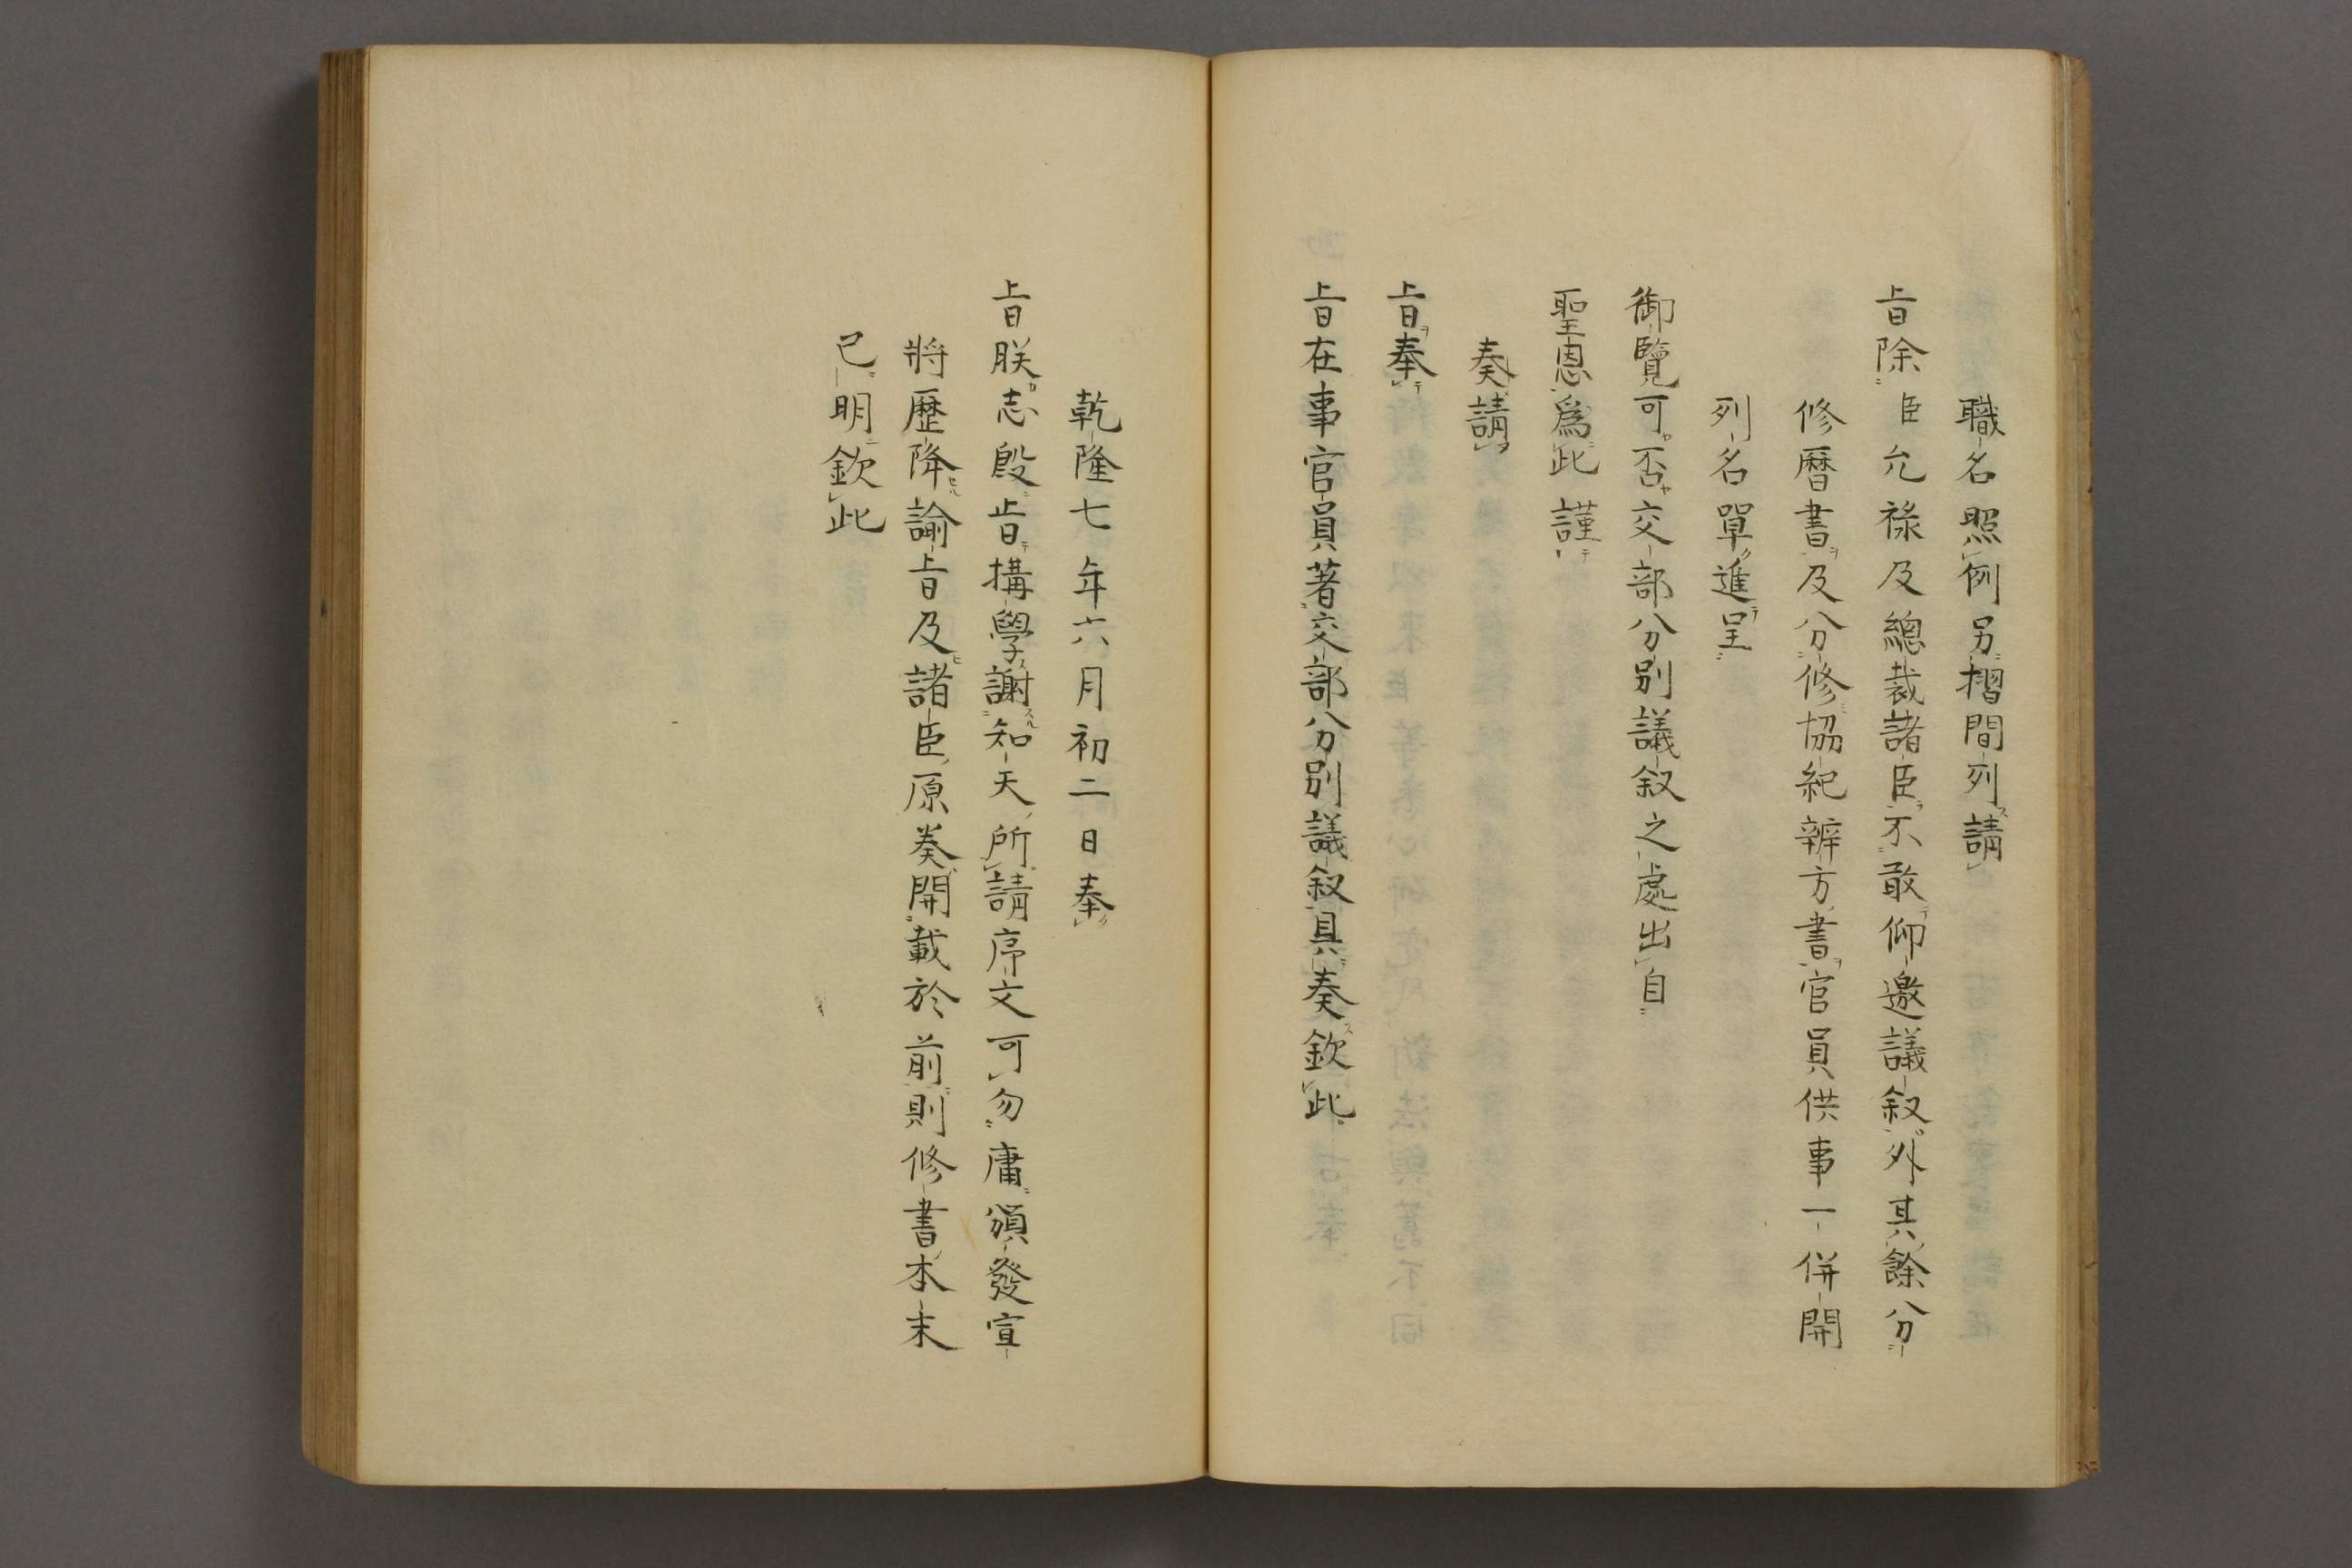 職名照例另摺間列請
旨除臣允祿及總裁諸臣不敢仰邀議叙外其餘分
修曆書及分修協紀辨方書官員供事一併開
列名單進呈
御覽可否交部分別議叙之處出自
聖恩為此謹
奏請
旨奉
旨在事官員著交部分別議叙具奏欽此
乾隆七年六月初二日奉
旨朕志殷肯搆學謝知天所請序文可勿庸頒發宣
將歷降諭旨及諸臣原奏開載於前則修書本末
已明欽此